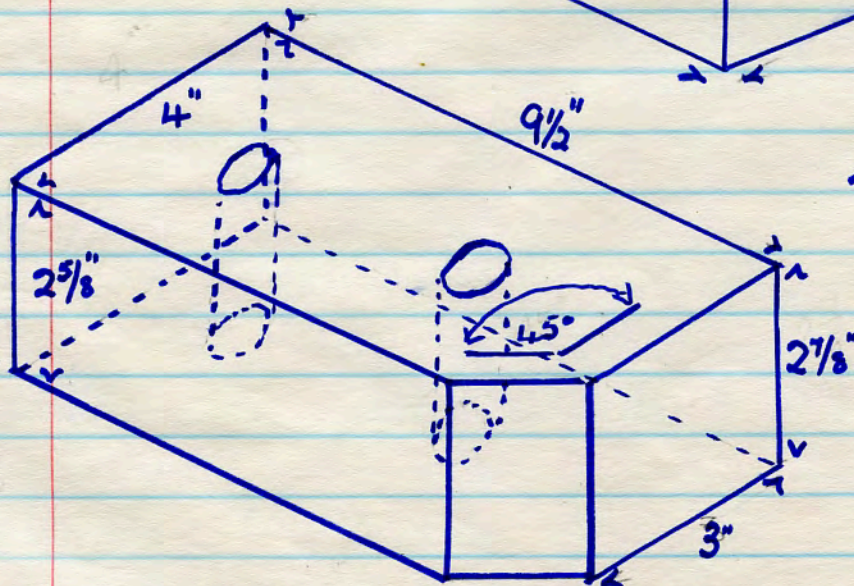 4"
9½"
2⅝"
45°
2⅞"
3"